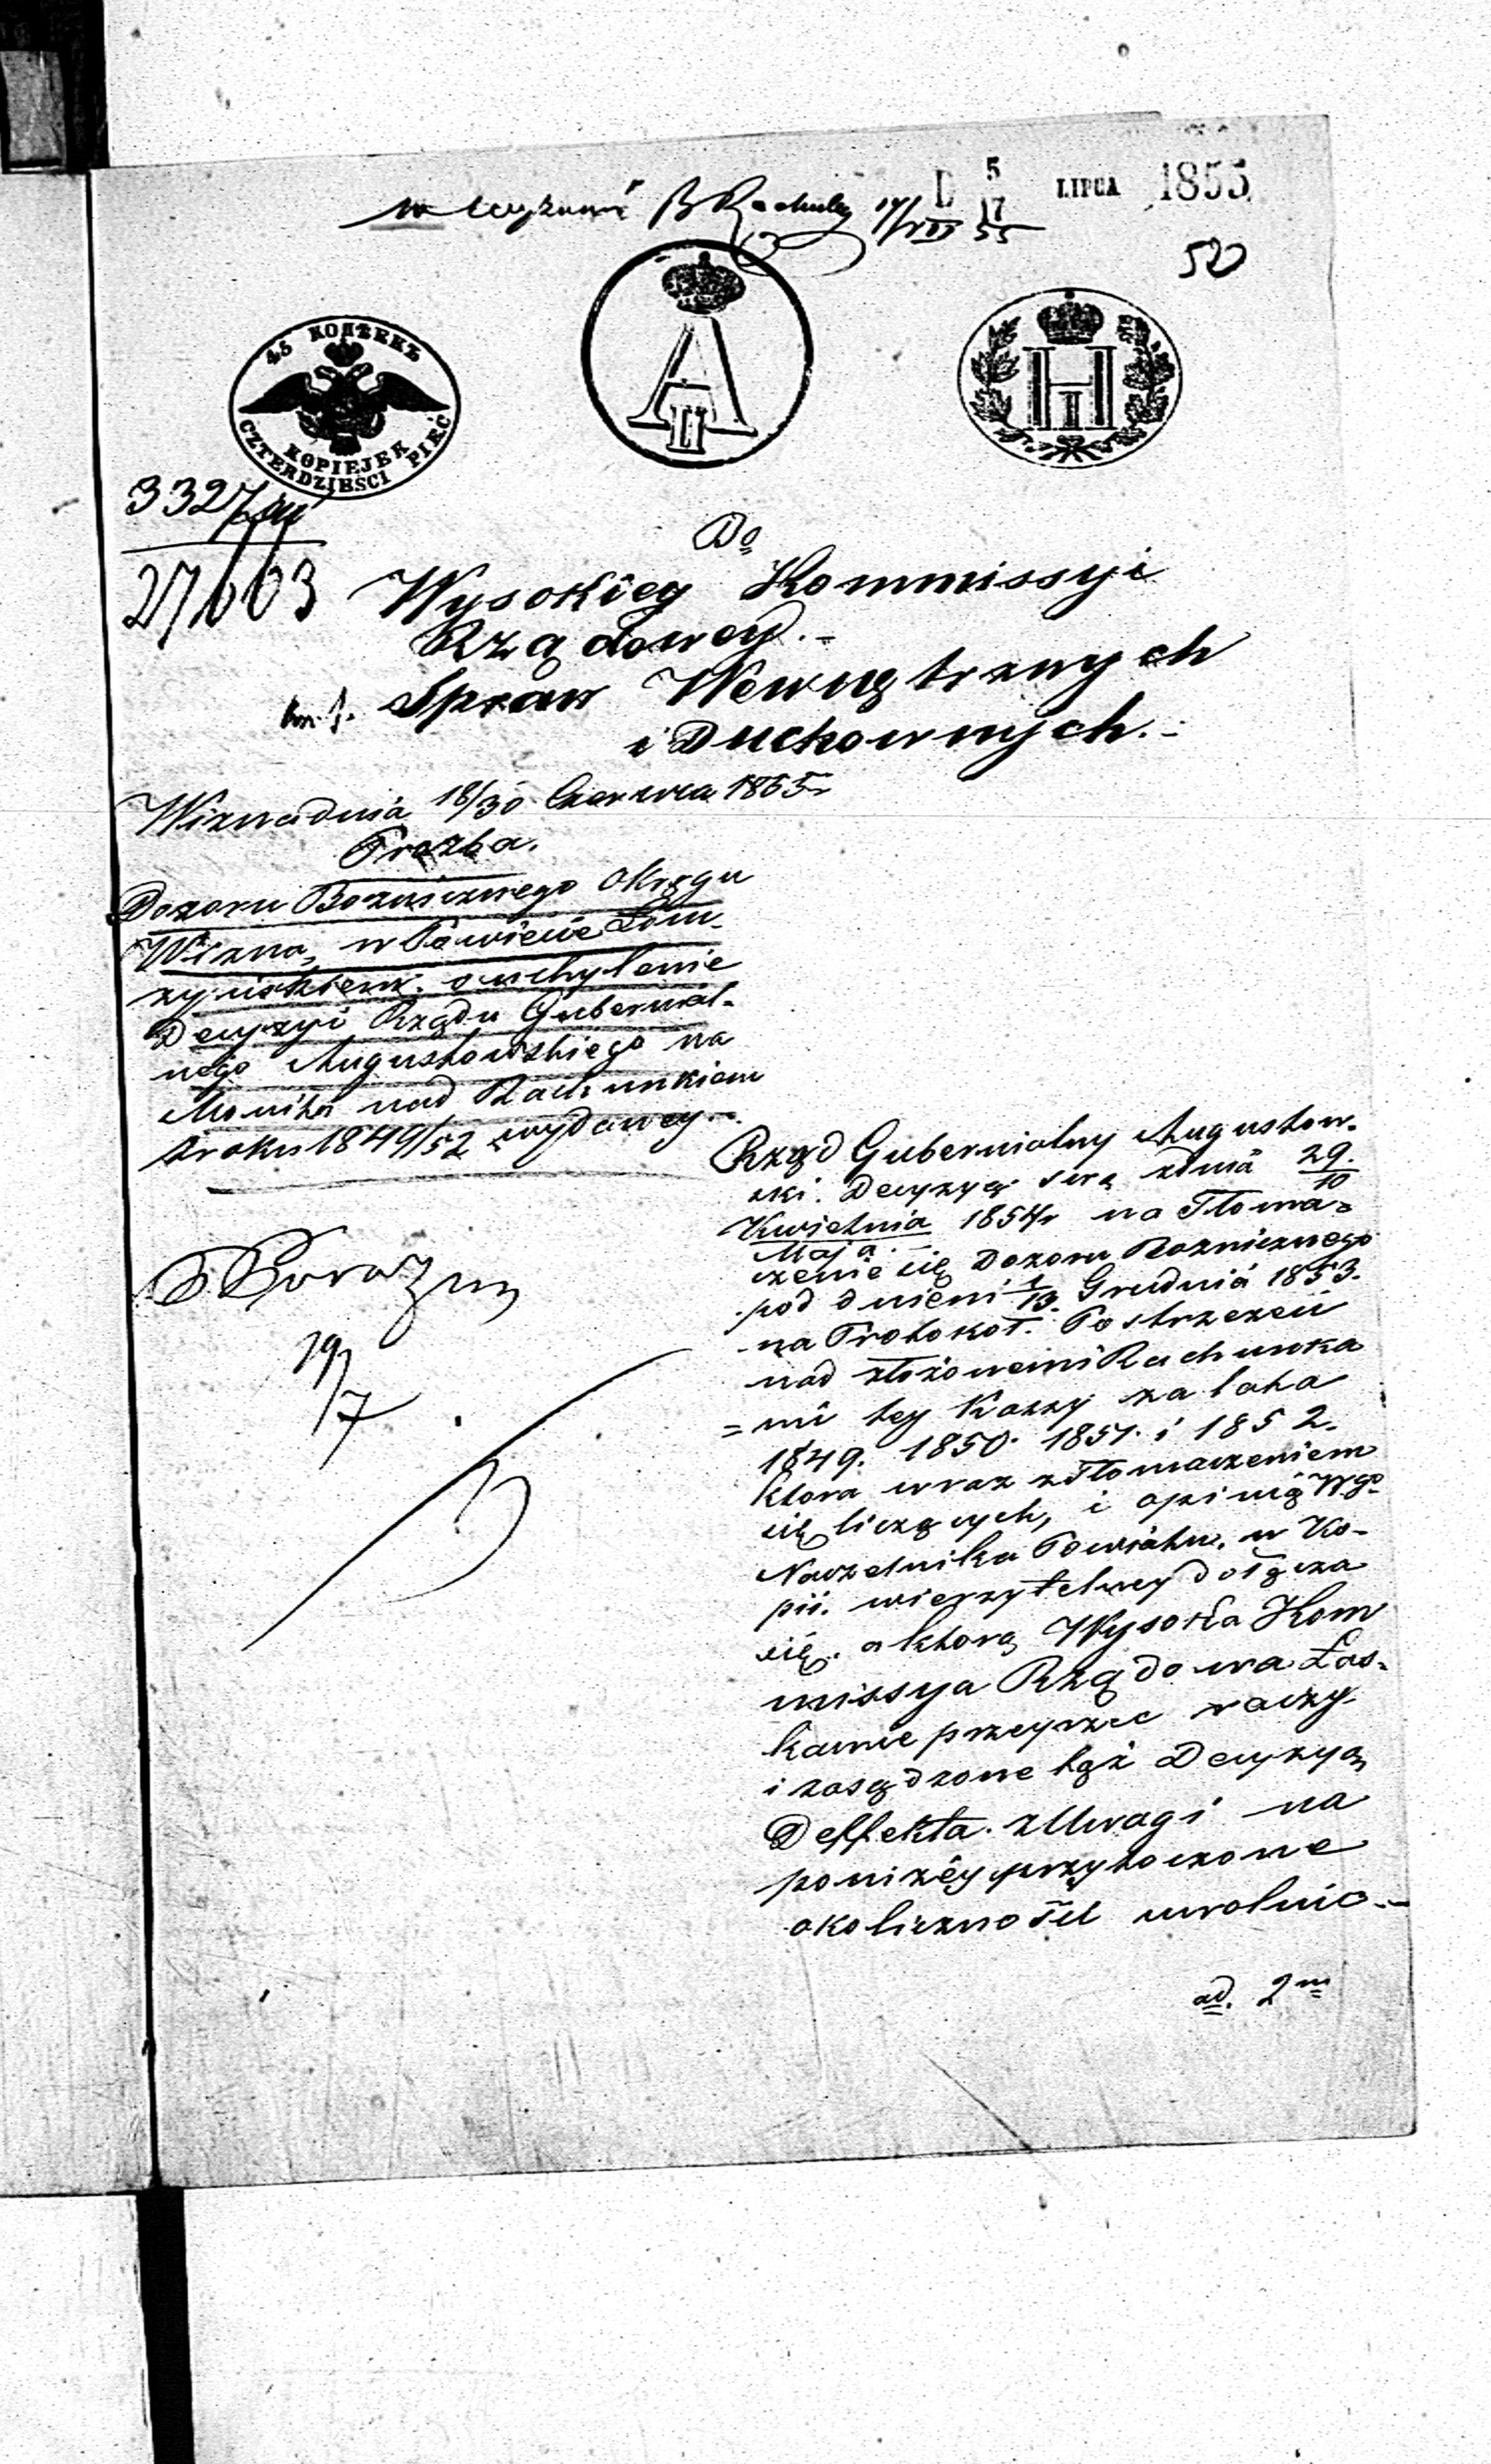 D 5/17 LIPCA 1855
52
45 КОПѢЕКЪ
KOPIEJEK
CZTERDZIEŚCI PIĘĆ
A II
H I
3327
27663
Do
Wysokiey Kommissyi
Rządowey.-
Spraw Wewnętrznych
i Duchownych.-
Wizna dnia 18/30 Czerwca 1855r
Prozba.
Dozoru Boznicznego Okręgu
Wizna, w Powiecie Łom-
zyńskiem. o uchylenie
Decyzyi Rządu Gubernial-
nego Augustowskiego na
Monita nad Rachunkiem
zroku 1849/52 wydaney.-
Rząd Gubernialny Augustow-
ski. Decyzyą swą zdnia 29. Kwietnia / 10 Maja 1854r na Tłoma-
czenie się Dozoru Boznicznego
pod dniem 1/13. Grudnia 1853.
na Protokoł. Postrzezeń
nad złożonemi Rachunka
=mi tey Kassy za lata
1849. 1850. 1851. i 1852.
ktora wraz z Tłomaczeniem
się liczących, i opinią Wgo
Naczelnika Powiatu, w Ko-
pii. wierzytelney dołącza
się. a ktorą Wysoka Kom
missya Rządowa Łas-
kawie przeyrzec raczy.
i zasądzone tąż Decyzyą
Deffekta. z Uwagi na
poniżey przytoczone
okoliczności uwolnic.-
ad. 2m
19/7